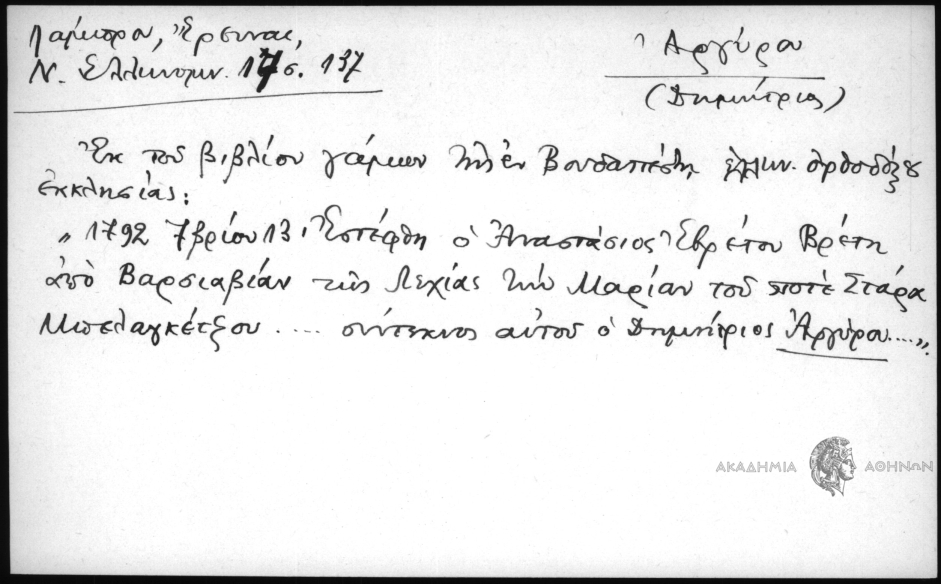 Λάμπρου, Ἔρευναι,
Ν. Ἑλληνομν. 17 σ. 137
Ἀργύρου
(Δημήτριος)
Ἐκ τοῦ βιβλίου γάμων τῆς ἐν Βουδαπέστῃ ἑλλην. ὀρθοδόξου
ἐκκλησίας:
„ 1792 7βρίου 13. Ἐστέφθη ὁ Ἀναστάσιος Ἐβρέτου Βρέτη
ἀπὸ Βαρσιαβίαν τῆς Λεχίας τὴν Μαρίαν τοῦ ποτὲ Στάρα
Μπελαγκέτζου .... σύντεκνος αὐτοῦ ὁ Δημήτριος Ἀργύρου....„.
ΑΚΑΔΗΜΙΑ ΑΘΗΝΩΝ